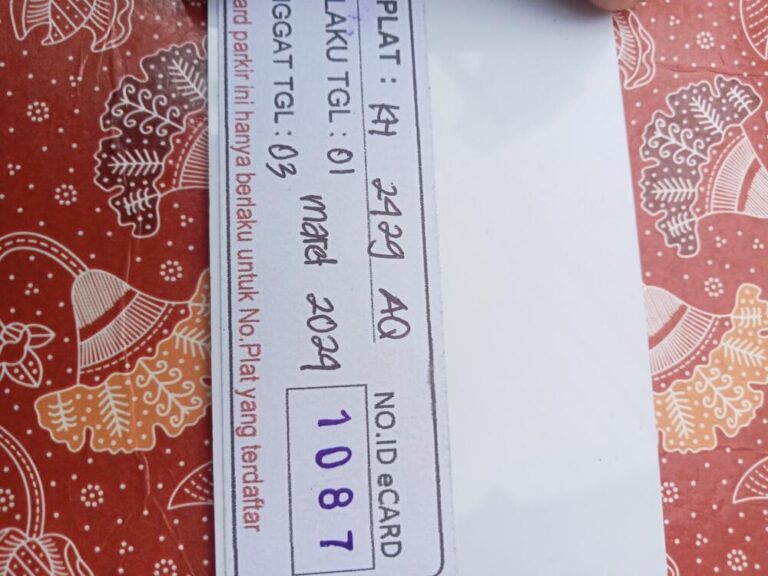 PLAT : KH 2429 AQ
LAKU TGL : 01
GGAT TGL : 03 maret 2024
NO.ID eCARD
1087
ard parkir ini hanya berlaku untuk No.Plat yang terdaftar